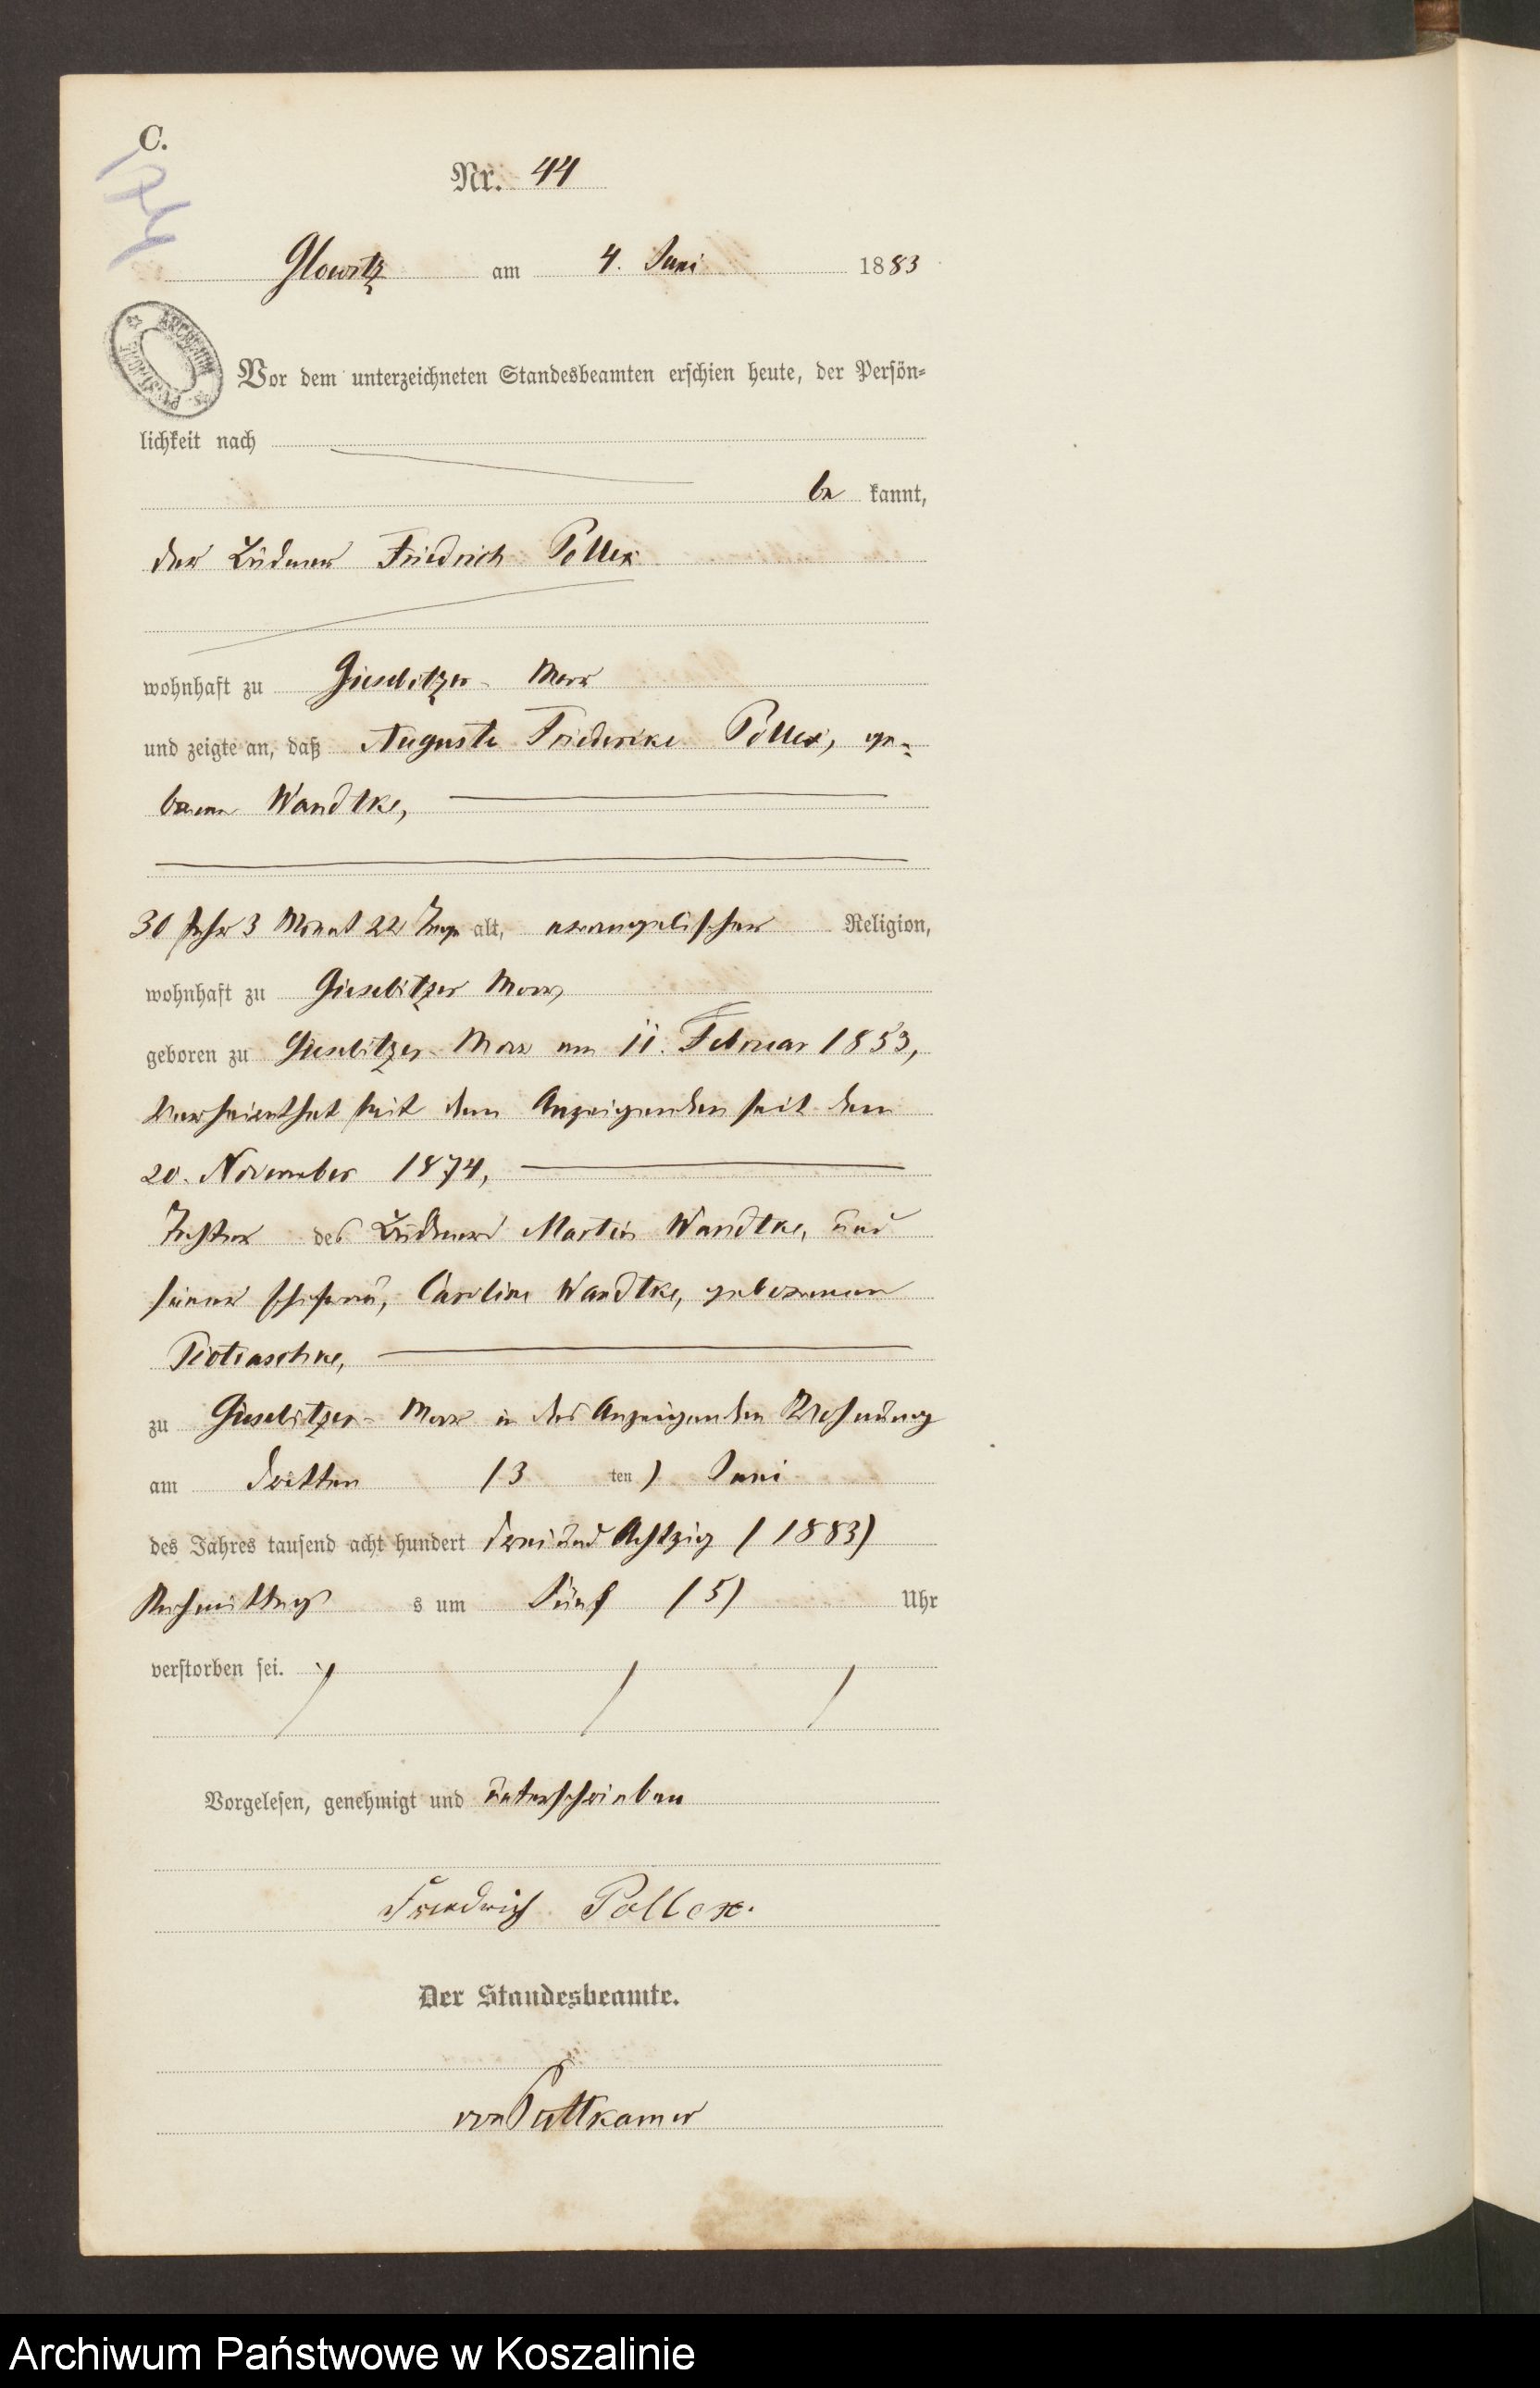 C.
Nr. 44
Glowitz am 4. Juni 1883
ARCHIWUM
Vor dem unterzeichneten Standesbeamten erschien heute, der Persön-
lichkeit nach
be kannt,
der Büdner Friedrich Pollex
wohnhaft zu Gieselitzer-Moor
und zeigte an, daß Auguste Friederike Pollex, ge-
borene Wandtke,
30 Jahr 3 Monat 22 Tage alt, evangelischer Religion,
wohnhaft zu Gieselitzer Moor,
geboren zu Gieselitzer-Moor am 11. Februar 1853,
verheirathet mit dem Anzeigenden seit dem
20. November 1874,
Tochter des Büdners Martin Wandtke, und
seiner Ehefrau, Caroline Wandtke, geborenen
zu Gieselitzer-Moor in des Anzeigenden Wohnung
am dritten (3 ten) Juni
des Jahres tausend acht hundert drei und Achtzig (1883)
Nachmittag s um Fünf (5) Uhr
verstorben sei.
Vorgelesen, genehmigt und unterschrieben
Friedrich Pollex.
Der Standesbeamte.
von Puttkamer
Archiwum Państwowe w Koszalinie